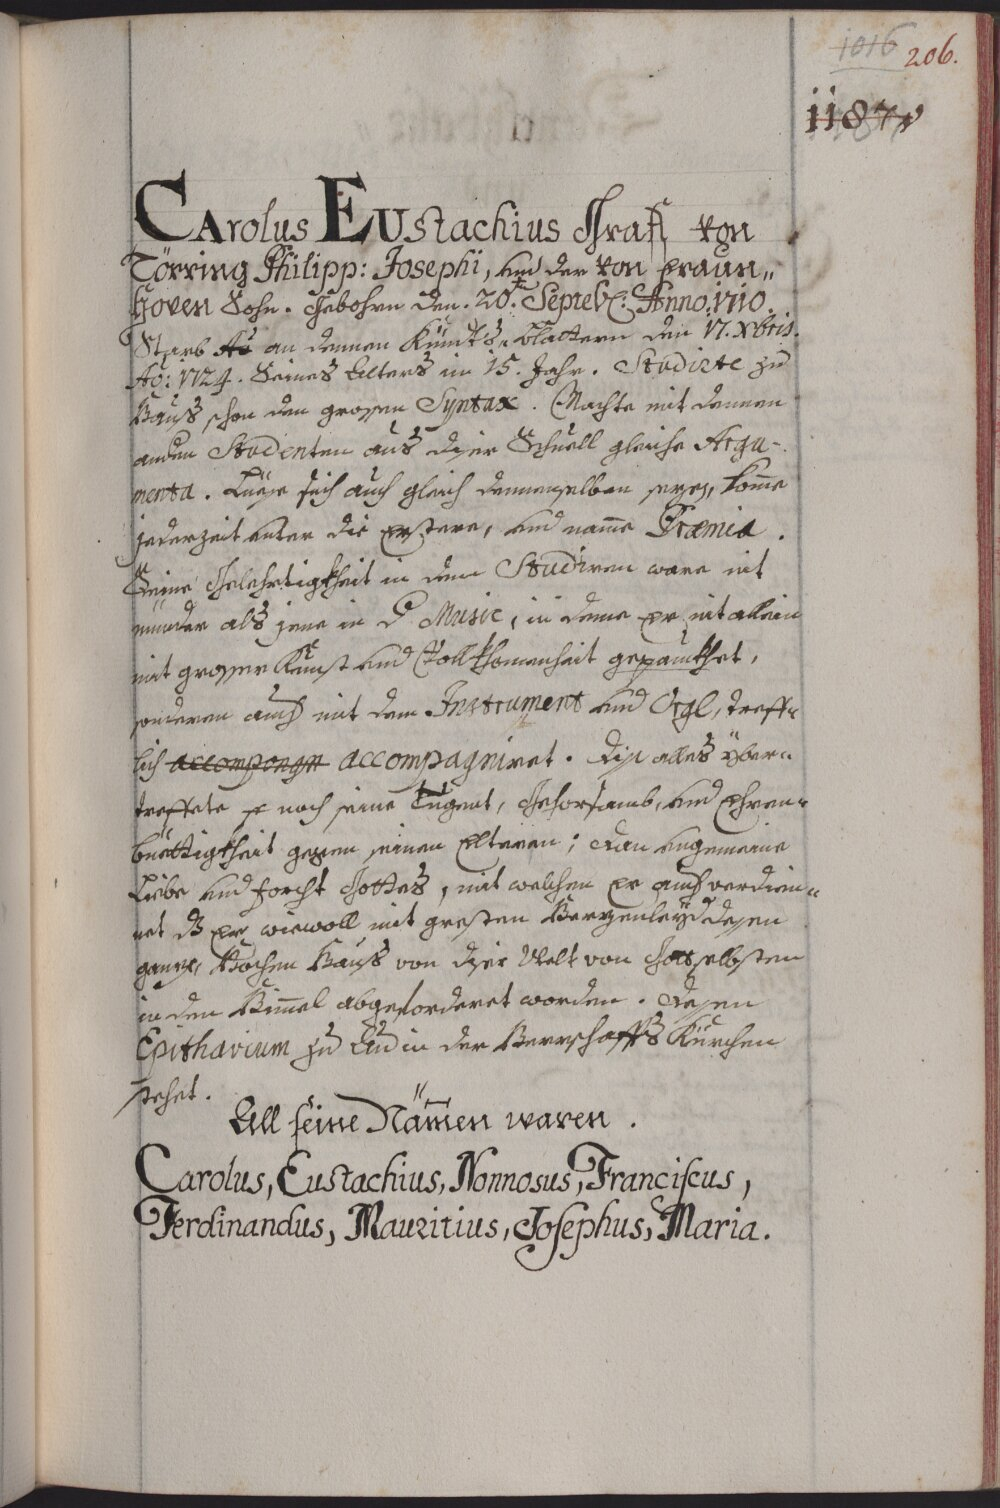 1016 206.
1187
CArolus EUstachius Graff von
Törring Philipp: Josephi, und der von Fraun„
hoven Sohn. Gebohrn den. 20.t Septeb: Anno. 1710.
Starb Aõ an dennen Kündts„blattern den 17. Xbris.
Aõ: 1724. Seines Alters im 15. Jahr. Studirte zu
Hauß schon den grossen Syntax. Machte mit dennen
andern Studenten auß diser Schuell gleiche Argu-
menta. Liesse sich auch gleich dennenselben sezen, komme
jederzeit unter die Erstere, und name Præmia.
Seine Gelehrtigkheit in dem Studiren ware nit
münder alß jene in d Music, in deme Er nit allein
mit grosser Kunst und Vollkhomenheit gepaukhet,
sonderen auch mit dem Instrument und Orgl, treff„
lich accompongn accompagniret. Diß alles yber„
treffete noch seine Tugent, Gehorsamb, und Ehren„
büettigkheit gegen seinen Elteren; Dan ungemeine
Liebe und forcht Gottes, mit welchen Er auch verdien„
net dz Er wiewoll mit gresten Herzenleyd dessen
ganz Hochen Hauß von diser Welt von Gott selbsten
in den Himel abgeforderet worden. Dessen
Epithavium zu Au in der Herrschaffts Kürchen
stehet.
All seine Nämen waren.
Carolus, Eustachius, Nonnosus, Franciscus,
Ferdinandus, Mauritius, Josephus, Maria.